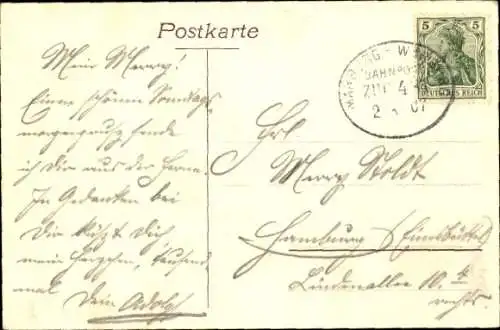 Postkarte
Mein Merry!
Einen schönen Sonntags-
morgengruß sende
ich Dir aus der Ferne.
In Gedanken bei
Dir küßt Dich
mein Herzchen, tausend
mal Dein Adolf
5 5
DEUTSCHES REICH
BAHNPOST
ZUG 4
2 07
Frl.
Merry Stoldt
Hamburg (Eimsbüttel)
Lindenallee 10.
rechts.